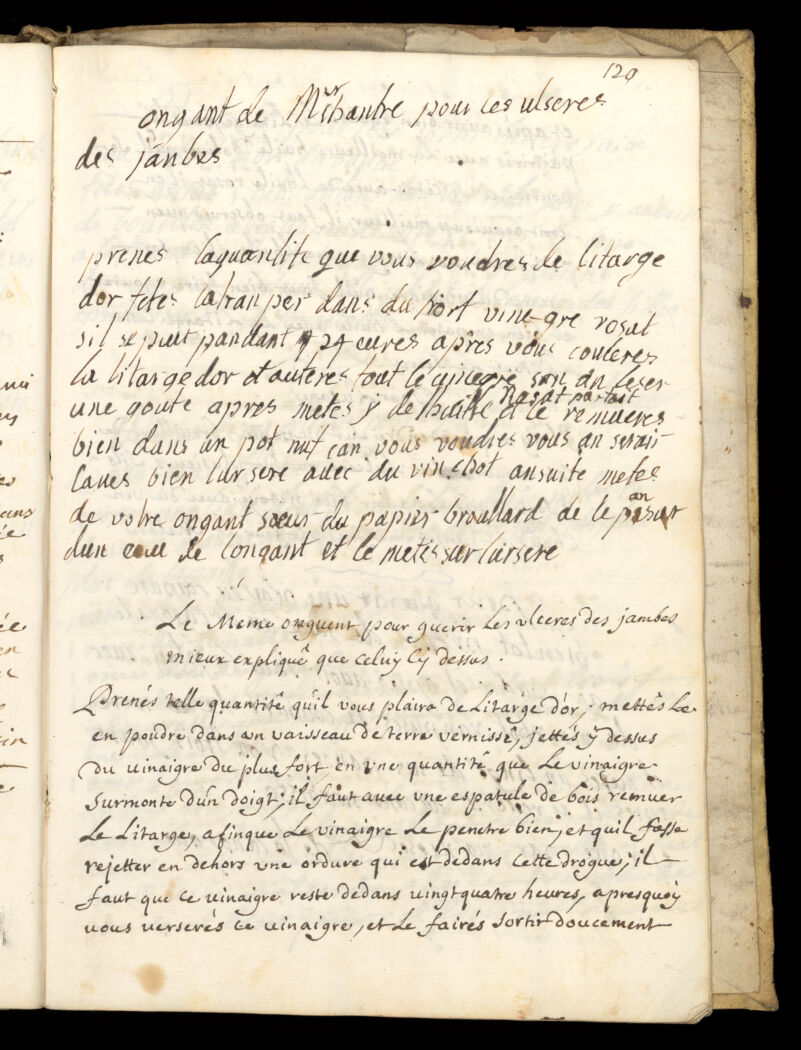 120
ongant de Mr chantre pour les ulseres
des janbes
prenes laquantite que vous voudres de litarge
dor fetes latranper dans du fort vinegre rosat
sil se puit pandant 24 eures apres vous couleres
la litarge dor et auteres tout le vinegre san an leser
une goute apres metes y de huille rosat partait et le remueres
bien dans un pot nuf can vous voudres vous an servir
laves bien lursere avec du vin chot ansuite metes
de votre ongant sur du papier broullard de le pansur
dun eau de longant et le metes sur lursere
Le Méme onguent pour guerir Les vlceres des jambes
mieux expliqué que celuy cy dessus.
Prenés telle quantité quil vous plaira de Litarge d'or, mettés Le
en poudre dans un vaisseau de terre vernissé, jettés y dessus
du vinaigre du plus fort en vne quantité que Le vinaigre
surmonte d'un doigt; il faut avec vne espatule de bois remuer
Le Litarge, afinque Le vinaigre Le penetre bien, et quil fasse
rejetter en dehors vne ordure qui est dedans cette drogue; il
faut que ce vinaigre reste dedans vingtquatre heures, apresquoy
vous verserés ce vinaigre, et Le fairés sortir doucement